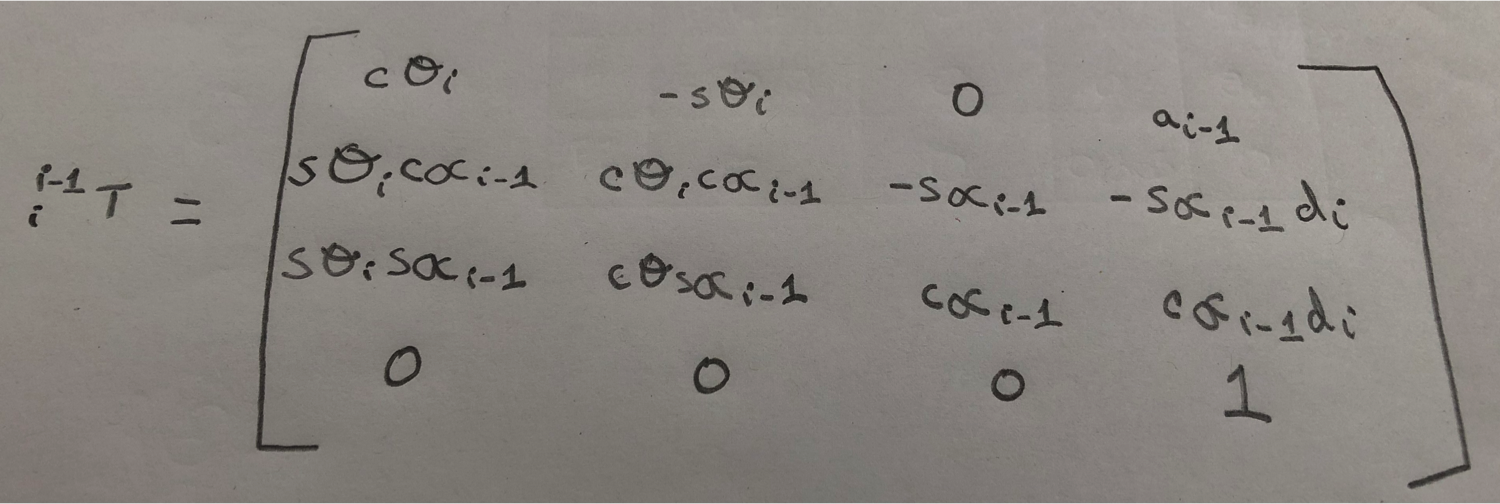 cθᵢ -sθᵢ 0 aᵢ₋₁
ⁱ⁻¹ᵢT = sθᵢcαᵢ₋₁ cθᵢcαᵢ₋₁ -sαᵢ₋₁ -sαᵢ₋₁dᵢ
sθᵢsαᵢ₋₁ cθsαᵢ₋₁ cαᵢ₋₁ cαᵢ₋₁dᵢ
0 0 0 1